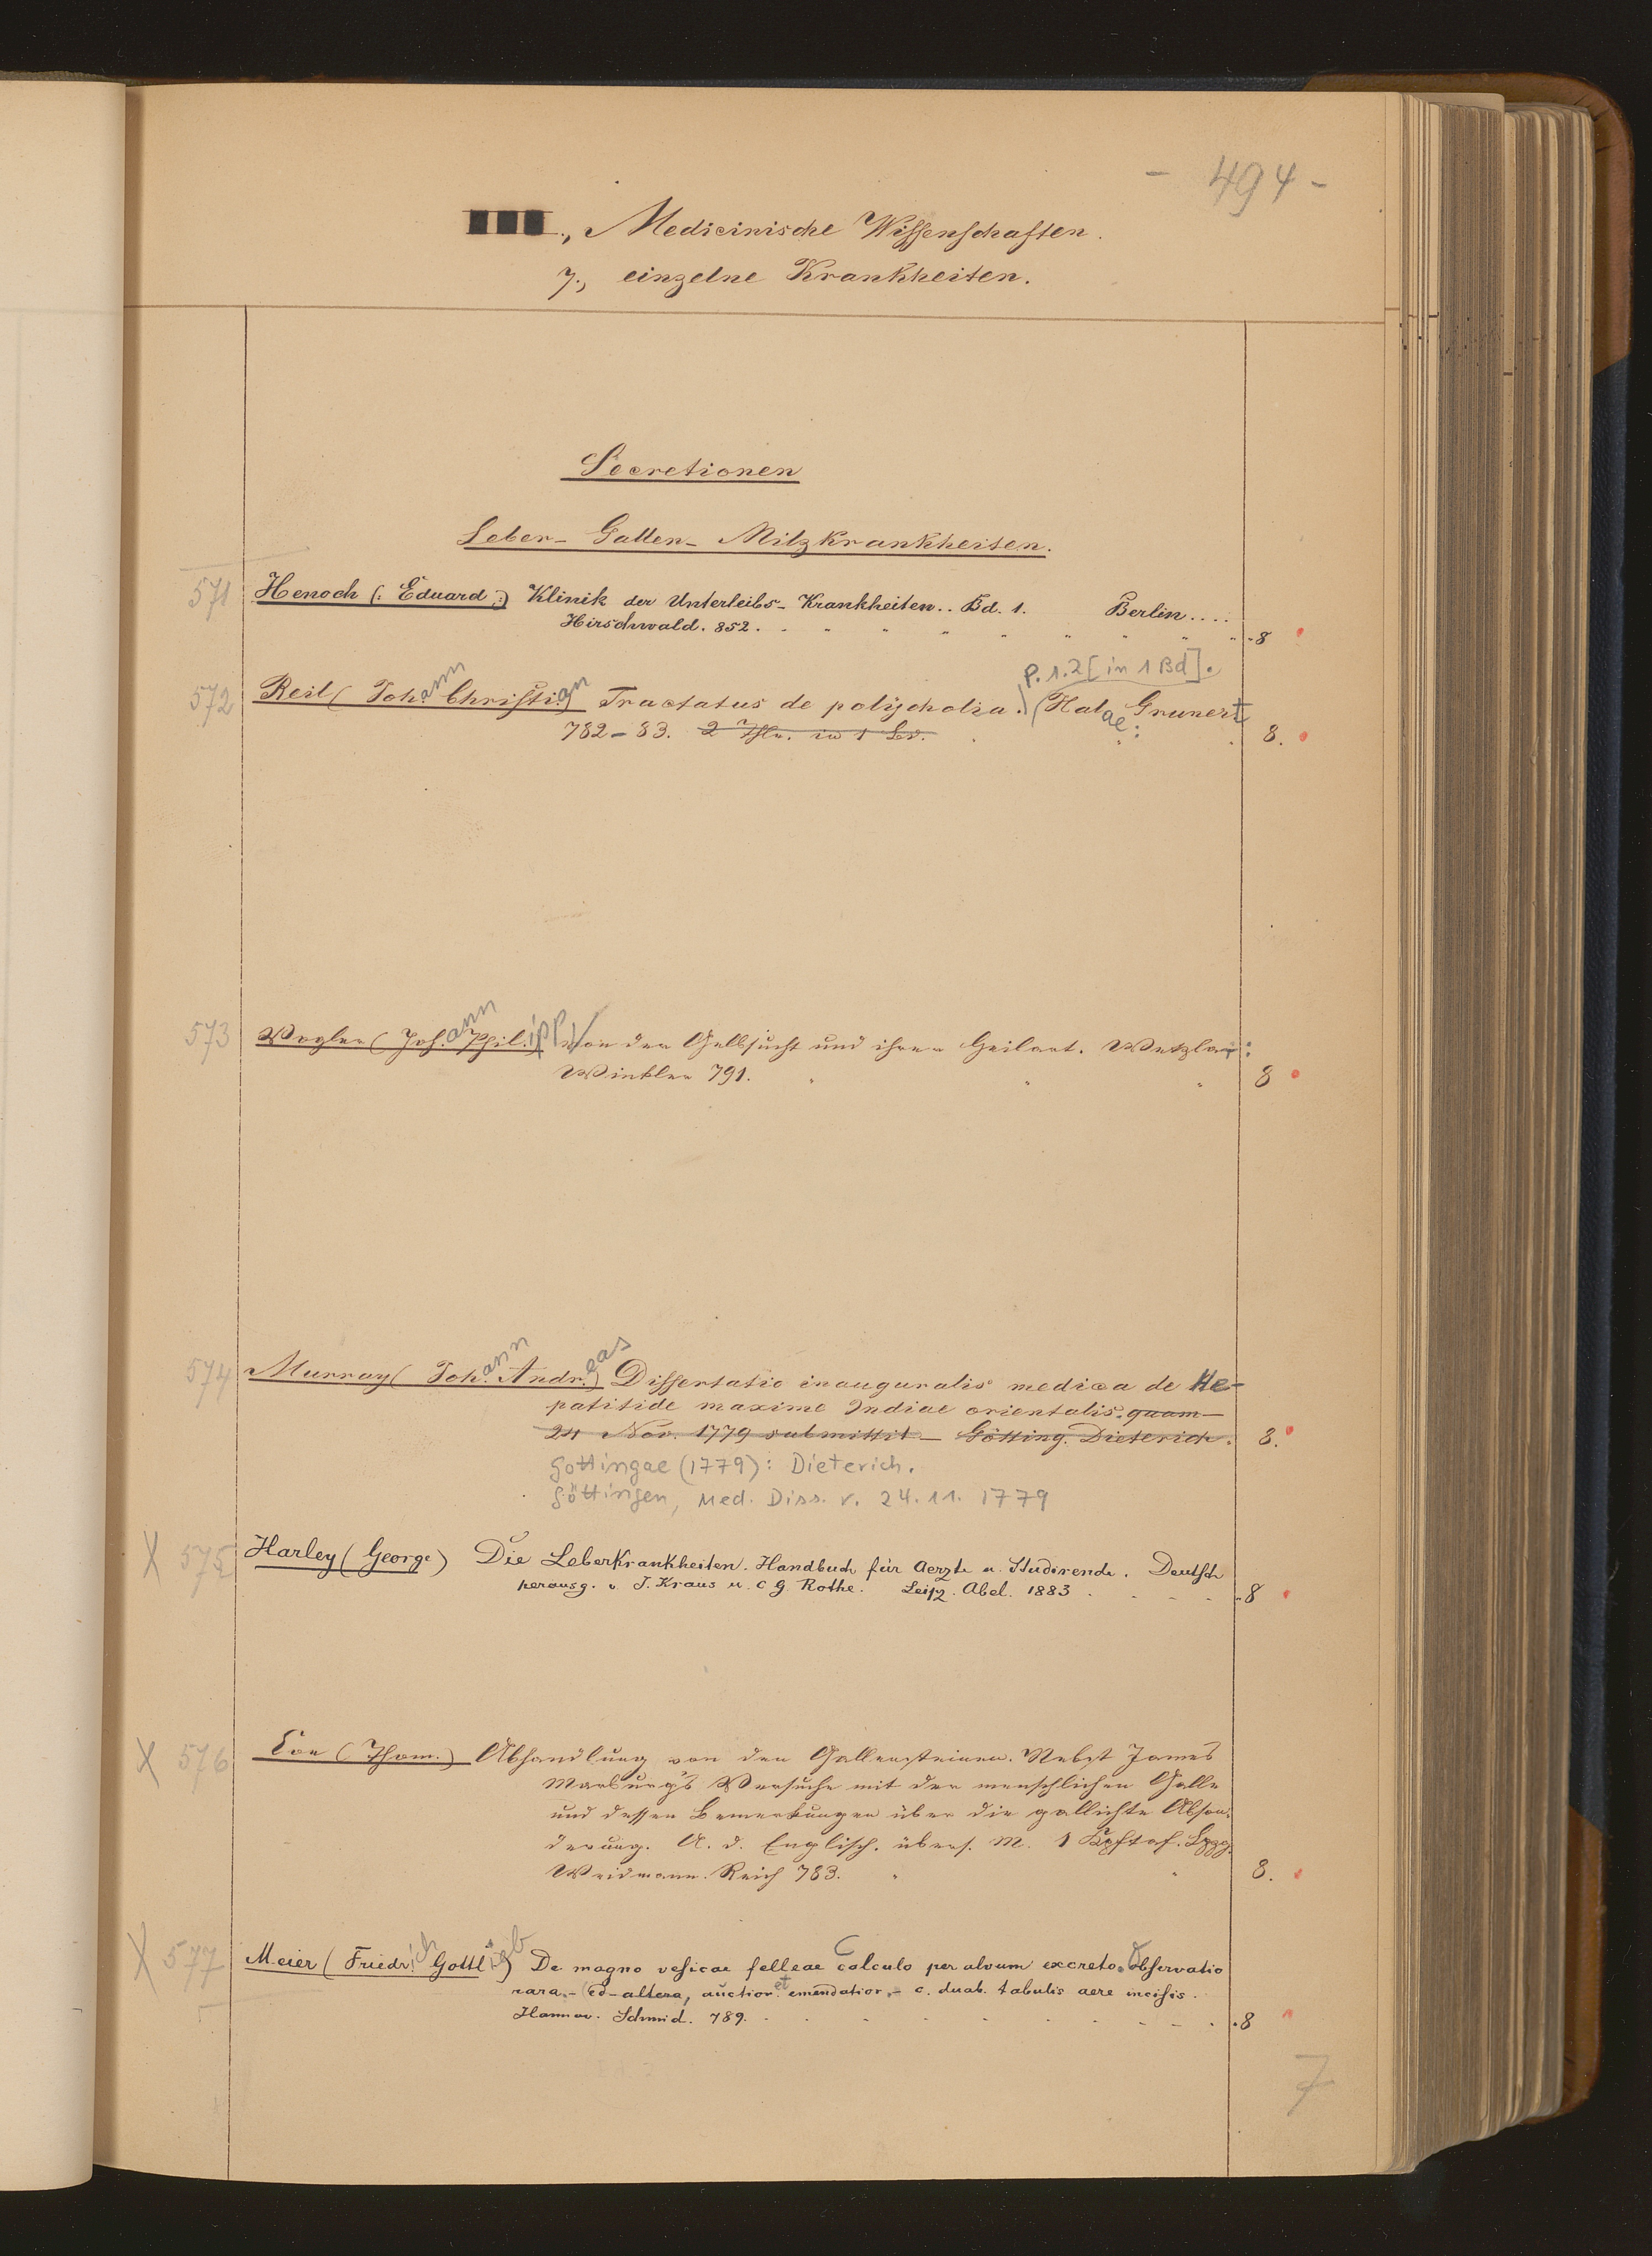 - 494 -
III., Medicinische Wissenschaften.
7., einzelne Krankheiten.
Secretionen
Leber- Gallen- Milzkrankheiten.
571 Henoch (: Eduard :) Klinik der Unterleibs-Krankheiten.. Bd. 1. Berlin....
Hirschwald. 852. 8
p. 1.2 [in 1 Bd].
572 Reil (Johann Christian) Tractatus de polycholia. (Halae: Grunert
782-83. 2 Thle. in 1 Bd. 8.
573 Vogler (Johann Philipp) Von der Gelbsucht und ihrer Heilart. Wetzlar:
Winkler 791. 8
574 Murray (Johann Andreas) Dissertatio inauguralis medica de He-
patitide maxime Indiae orientalis. quam
24 Nov. 1779 submittit - Götting. Dieterich. 8.
Gottingae (1779): Dieterich.
Göttingen, Med. Diss. v. 24.11.1779
X 575 Harley (George) Die Leberkrankheiten. Handbuch für Aerzte u. Studirende. Deutsch
herausg. v. J. Kraus u. C G. Rothe. Leipz. Abel. 1883. 8
X 576 Coe (Thom.) Abhandlung von den Gallensteinen. Nebst James
Marburg's Versuche mit der menschlichen Galle
und dessen Bemerkungen über die gallichte Abson-
derung. A. d. Englisch. übers. M. 1 Kpftaf. Lpzg.
Weidmann. Reich 783. 8.
X 577 Meier (Friedrich Gottlieb) De magno vesicae felleae Calculo per alvum excreto. Observatio
rara. - (ed-altera, auctior. et emendatior. - c. duab. tabulis aere incisis.
Hannov. Schmid. 789. 8
7